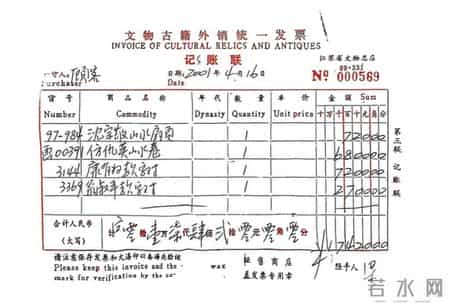 文物古籍外销统一发票
INVOICE OF CULTURAL RELICS AND ANTIQUES
记账联
江苏省文物总店
购货人 顾客
Purchaser
日期: 2001年4月16日
Date
99-331
Nº 000569
货号 商品名称 年代 数量 单价 金额 Sum
Number Commodity Dynasty Quantity Unit price 十万千百十元角分
97-984 山水扇面 1 72000
西00391 仿仇英山水卷 1 680000
3144 康有为款字对 1 720000
3369 翁叔平款字对 1 270000
第三联 记账联
合计人民币 零 拾 壹 万 柒 仟 肆 佰 贰 拾 零 元 零 角 零 分 ¥1742000
(大写)
请注意保存发票和大海印以备海关检
Please keep this invoice and the wax
mark for verification by the
销售商店
盖发票专用章
经手人
若水网